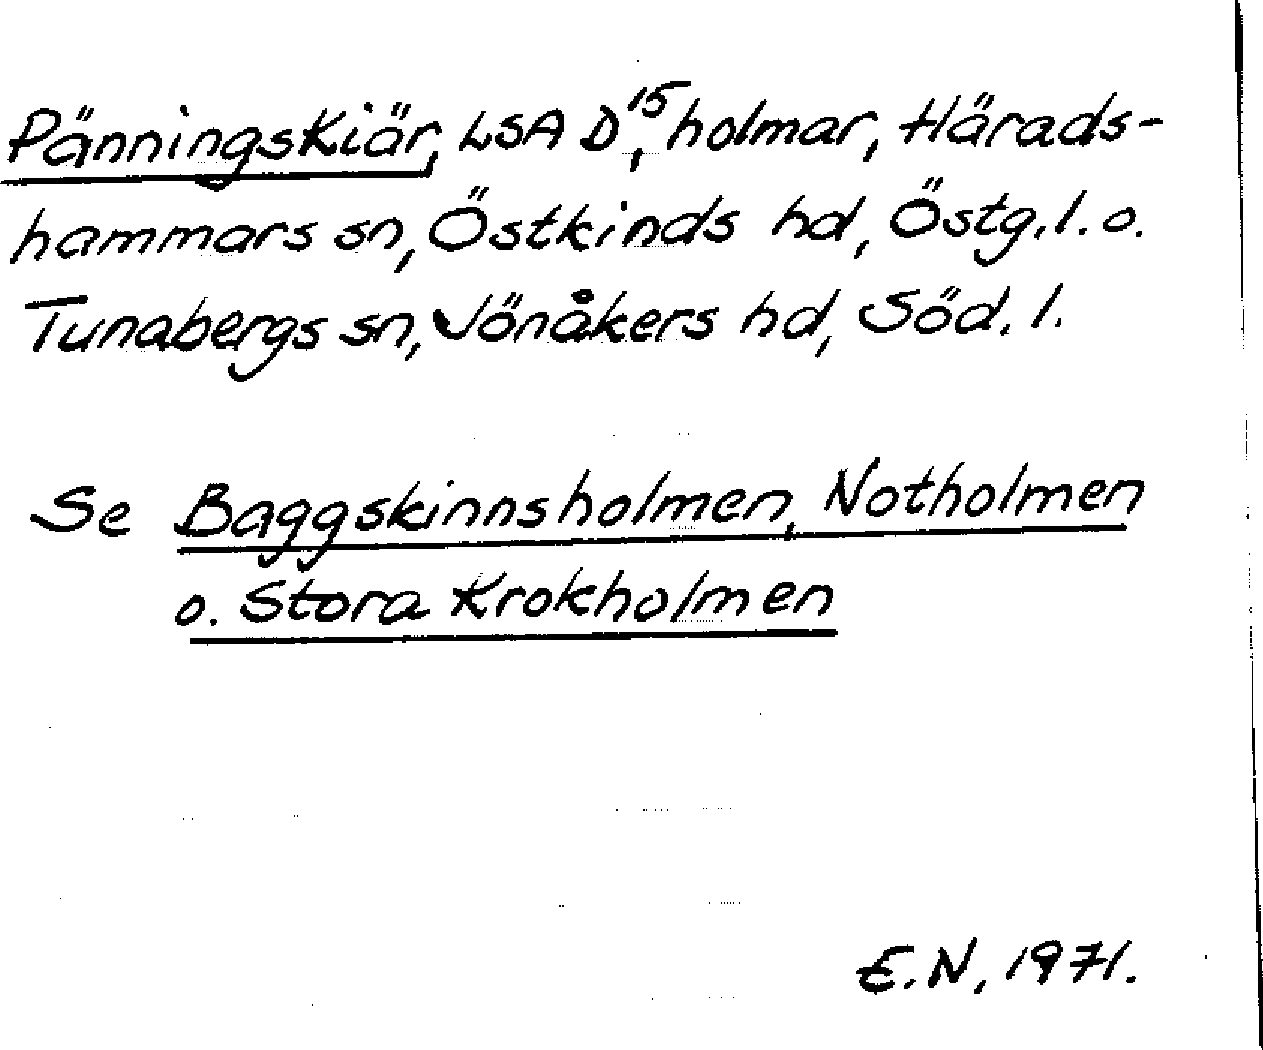 PänningsKiär, LSA D¹⁵, holmar, Härads-
hammars sn, Östkinds hd, Östg. l. o.
Tunabergs sn, Jönåkers hd, Söd. l.
Se Baggskinnsholmen, Notholmen
o. Stora Krokholmen
E.N, 1971.